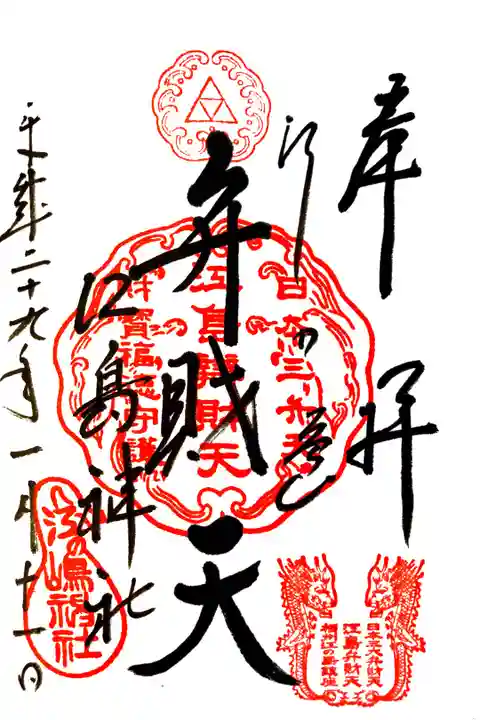 奉拝
江の島
弁財天
江島神社
平成二十九年一月十一日
日本三弁天
江島弁財天
財寳福徳守護
江の嶋神社
日本三大弁財天
江島弁財天
相州江の島鎮座